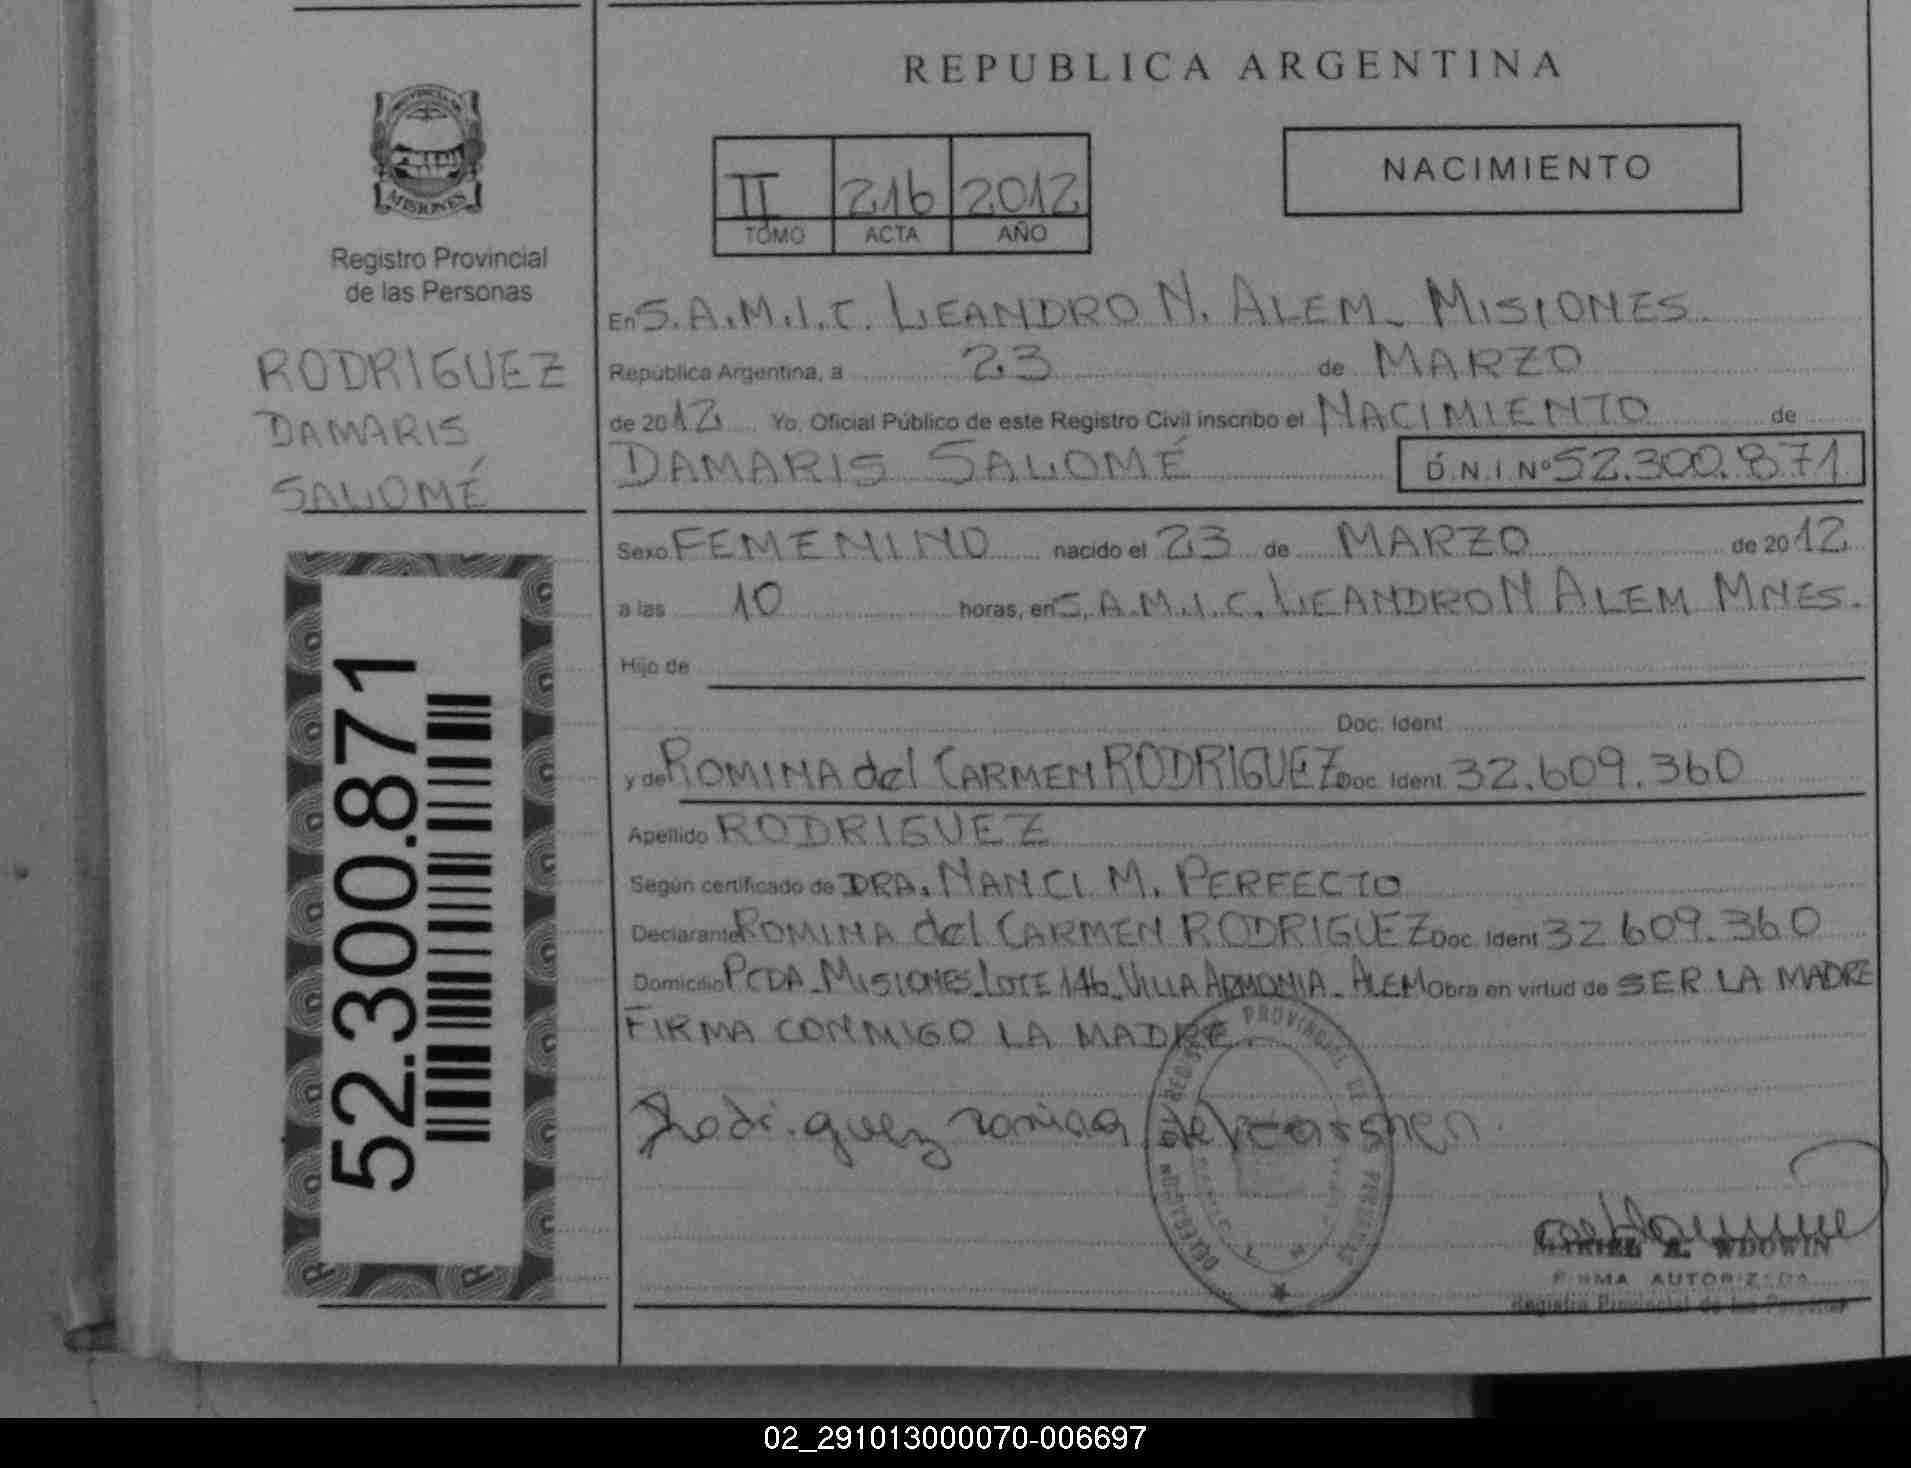 REPUBLICA ARGENTINA
PROVINCIA DE
MISIONES
Registro Provincial
de las Personas
RODRIGUEZ
DAMARIS
SALOMÉ
52.300.871
II 216 2012
TOMO ACTA AÑO
NACIMIENTO
En S.A.M.I.C. LEANDRO N. ALEM - MISIONES.
República Argentina, a 23 de MARZO
de 2012 Yo, Oficial Público de este Registro Civil inscribo el NACIMIENTO de
DAMARIS SALOMÉ D.N.I. Nº 52.300.871
Sexo FEMENINO nacido el 23 de MARZO de 2012
a las 10 horas, en S.A.M.I.C. LEANDRO N ALEM MNES.
Hijo de
Doc. Ident
y de ROMINA del CARMEN RODRIGUEZ Doc. Ident 32.609.360
Apellido RODRIGUEZ
Según certificado de DRA. NANCI M. PERFECTO
Declarante ROMINA del CARMEN RODRIGUEZ Doc. Ident 32 609.360
Domicilio PCDA - MISIONES - LOTE 146 - VILLA ARMONIA - ALEM Obra en virtud de SER LA MADRE
FIRMA CONMIGO LA MADRE.
Rodriguez romina del carmen
PROVINCIAL DE
DELEGACION
MARIEL A. WDOWIN
FIRMA AUTORIZADA
Registro Provincial de las Personas
02_291013000070-006697